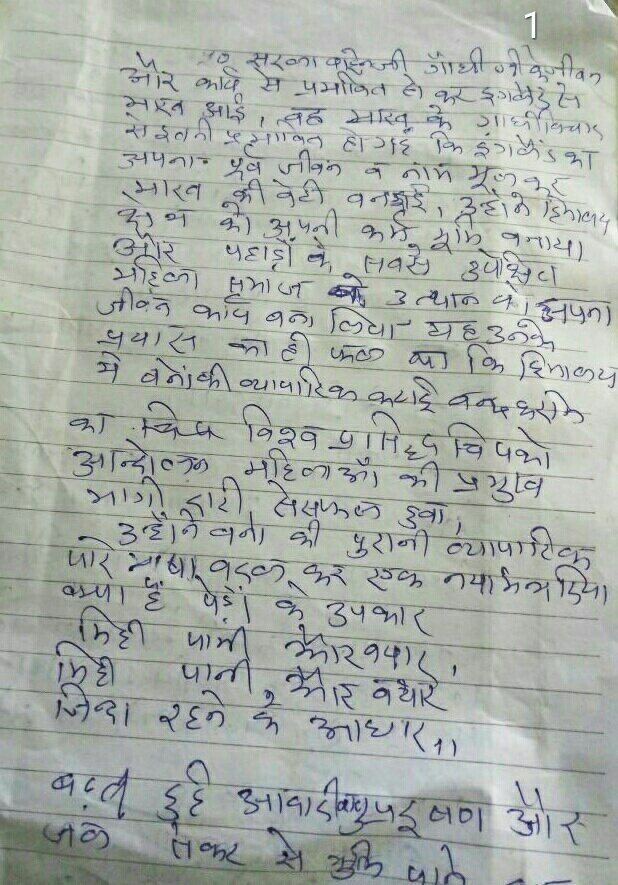 1
सरला बहनजी गाँधी जी के जीवन
और कार्य से प्रभावित हो कर इंगलैंड से
भारत आई, वह भारत के गाँधी विचार
से इतनी प्रभावित हो गई कि इंगलैंड का
अपना पूर्व जीवन व नाम भूल कर
भारत की बेटी बन गई, उन्होंने हिमालय
क्षेत्र को अपनी कर्म भूमि बनाया।
और पहाड़ों के सबसे उपेक्षित
महिला समाज के उत्थान को अपना
जीवन कार्य बना लिया यह उनके
प्रयास का ही फल था कि हिमालय
में वनों की व्यापारिक कटाई बन्द कराने
का विश्व प्रसिद्ध चिपको
आन्दोलन महिलाओं की प्रमुख
भागीदारी से सफल हुवा,
उन्होंने वनों की पुरानी व्यापारिक
परिभाषा बदल कर एक नया मंत्र दिया
क्या हैं पेड़ों के उपकार
मिट्टी पानी और बयार,
मिट्टी पानी और बयार
जिन्दा रहने के आधार,।।
बढ़ती हुई आबादी वायु प्रदूषण और
जल संकट से मुक्ति पाने